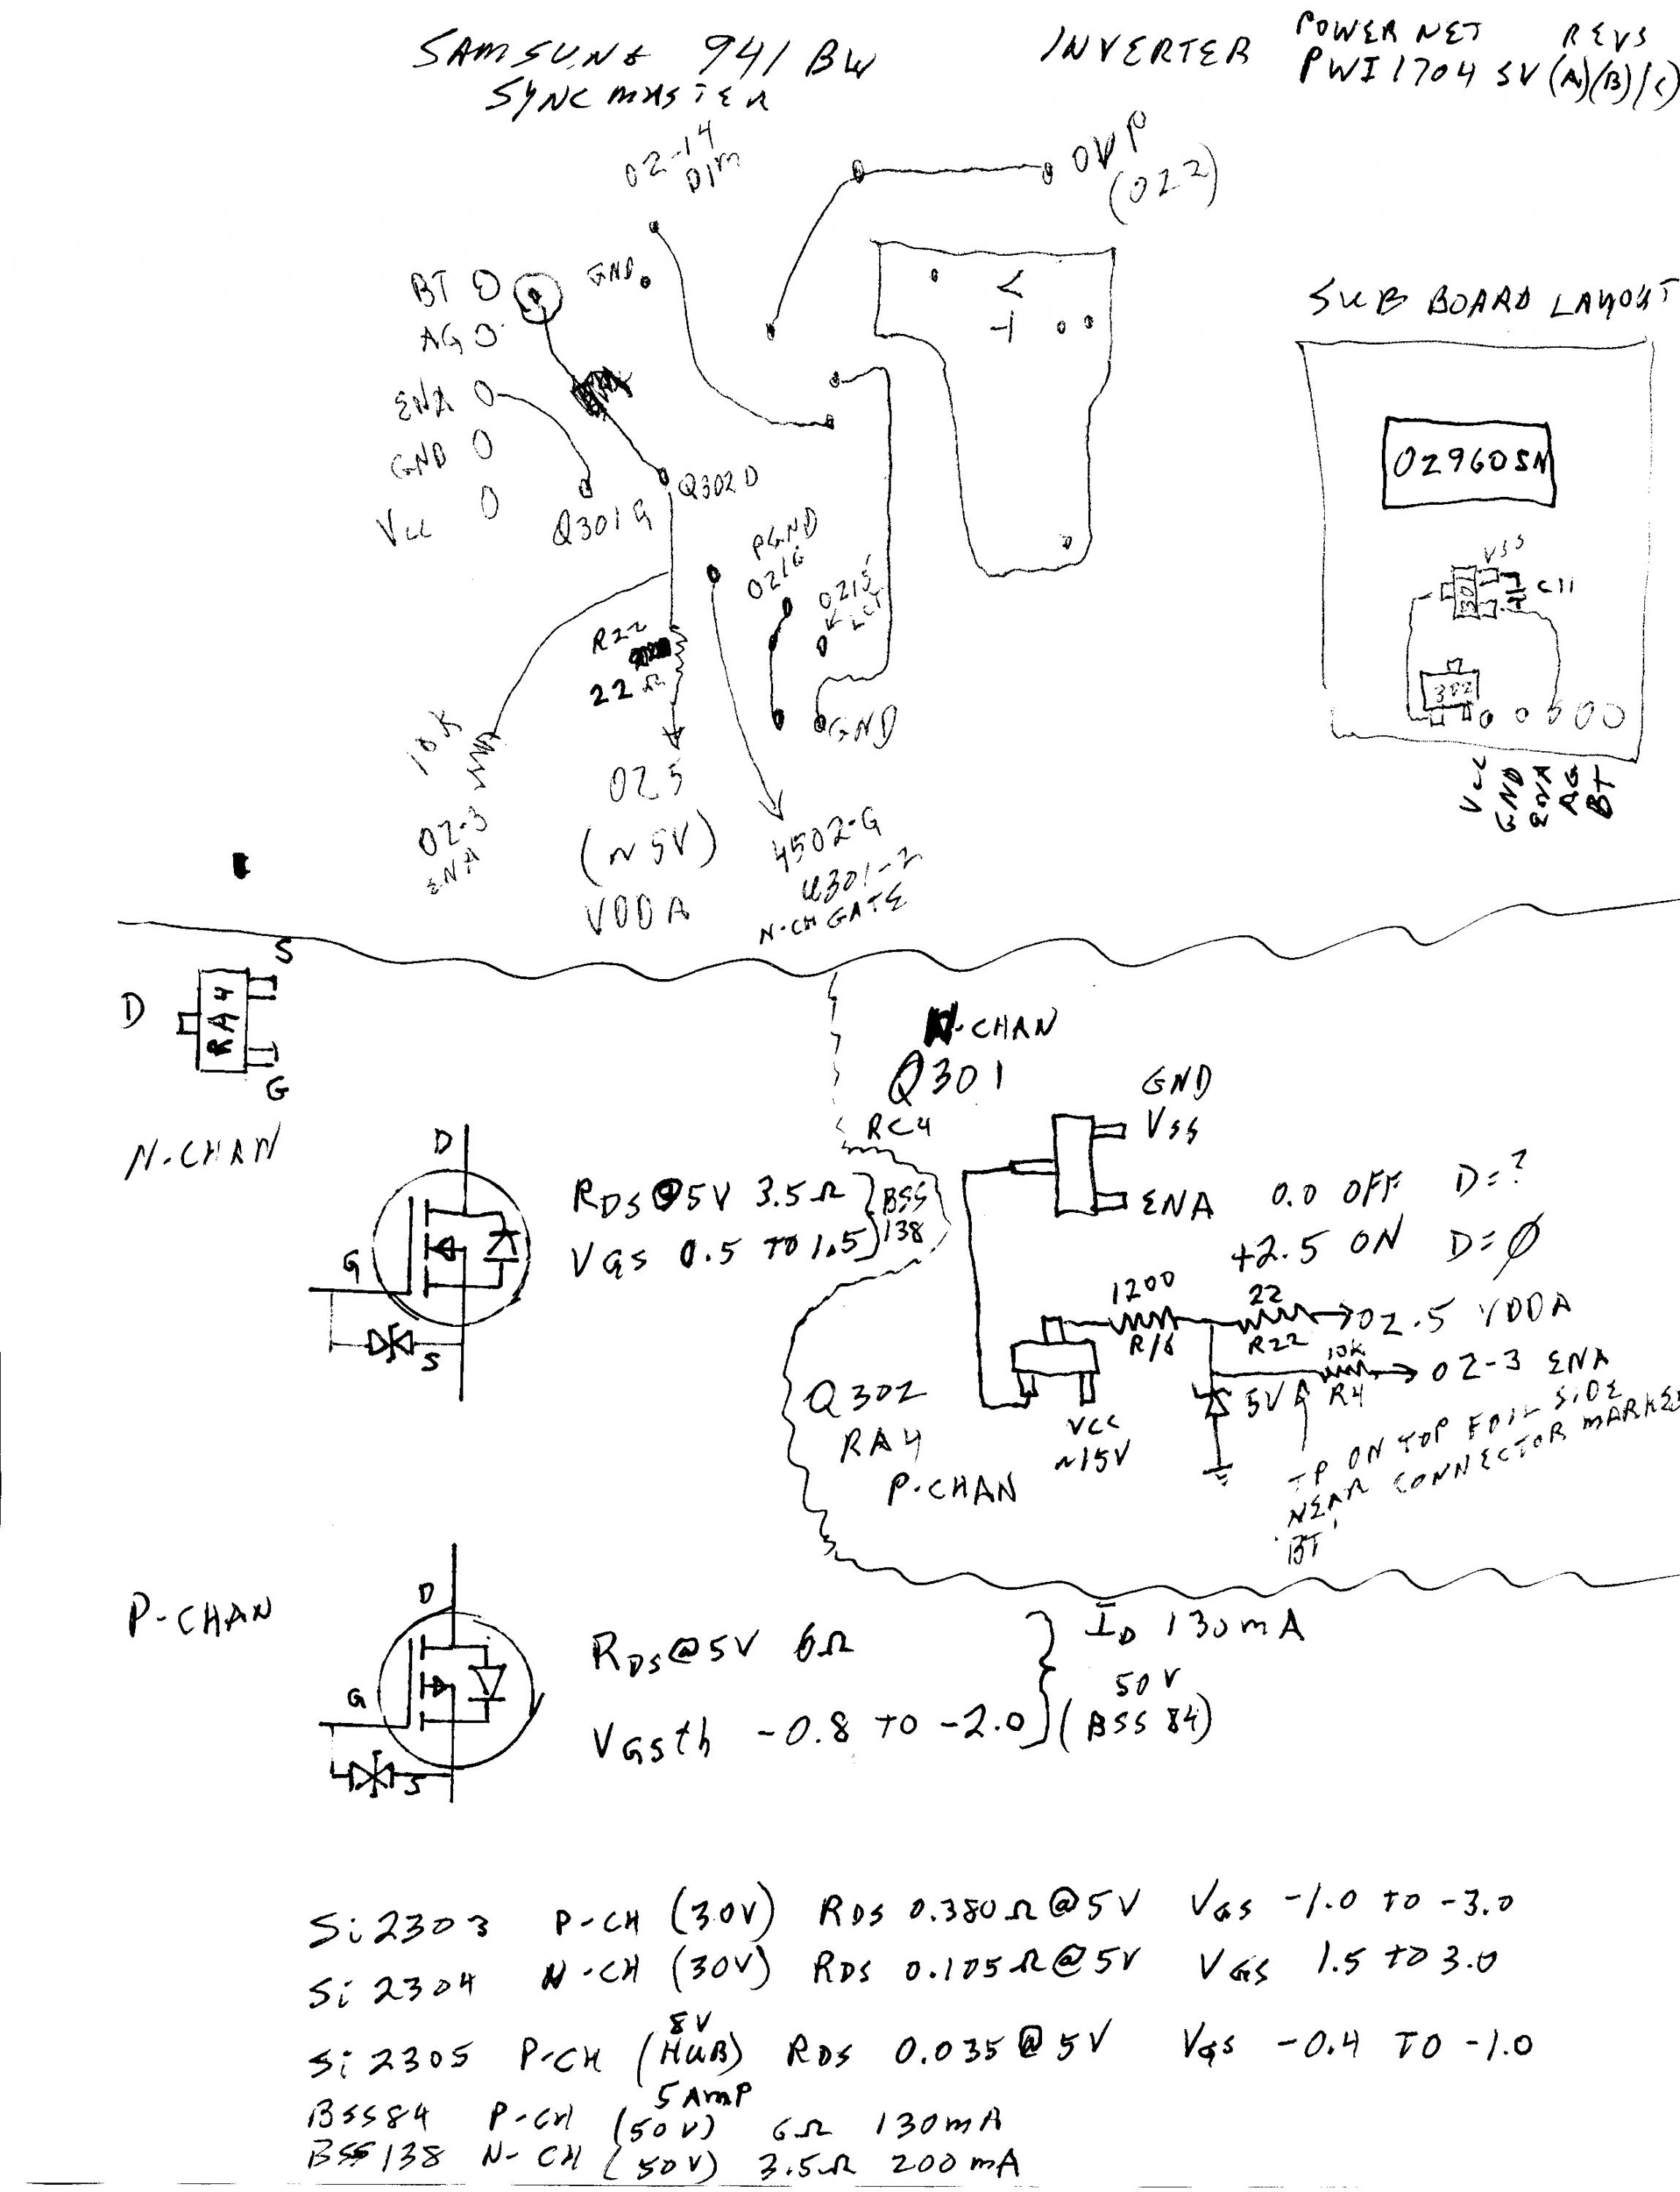 SAMSUNG 941 BW
SYNCMASTER
INVERTER
POWER NET REVS
PWI1704 SV (A)/(B)/(C)
OZ-14
DIM
OVP
(OZ2)
BT
GND
AG
ENA
GND
VCC
Q301G
Q302D
PGND
OZ16
OZ15
LCT
R22
22Ω
GND
10K
OZ-3
ENA
OZ5
(~5V)
VDDA
4502-G
U301-2
N-CH GATE
SUB BOARD LAYOUT
OZ960SN
VSS
301
C11
302
VCC
GND
ENA
AG
BT
S
D
RA4
G
N-CHAN
D
G
S
RDS@5V 3.5Ω
VGS 0.5 TO 1.5
BSS
138
N-CHAN
Q301
RC4
GND
VSS
ENA
0.0 OFF D=?
+2.5 ON D=Ø
1200
R16
22
R22
OZ.5 VDDA
10K
R4
OZ-3 ENA
5V
Q302
RA4
P-CHAN
VCC
~15V
TP ON TOP FOIL SIDE
NEAR CONNECTOR MARKED
'BT'
P-CHAN
D
G
S
RDS@5V 6Ω
VGSth -0.8 TO -2.0
ID 130mA
50V
(BSS 84)
Si2303 P-CH (30V) RDS 0.380Ω@5V VGS -1.0 TO -3.0
Si2304 N-CH (30V) RDS 0.105Ω@5V VGS 1.5 TO 3.0
8V
Si2305 P-CH (HUB) RDS 0.035@5V VGS -0.4 TO -1.0
5 AMP
BSS84 P-CH (50V) 6Ω 130mA
BSS138 N-CH (50V) 3.5Ω 200mA